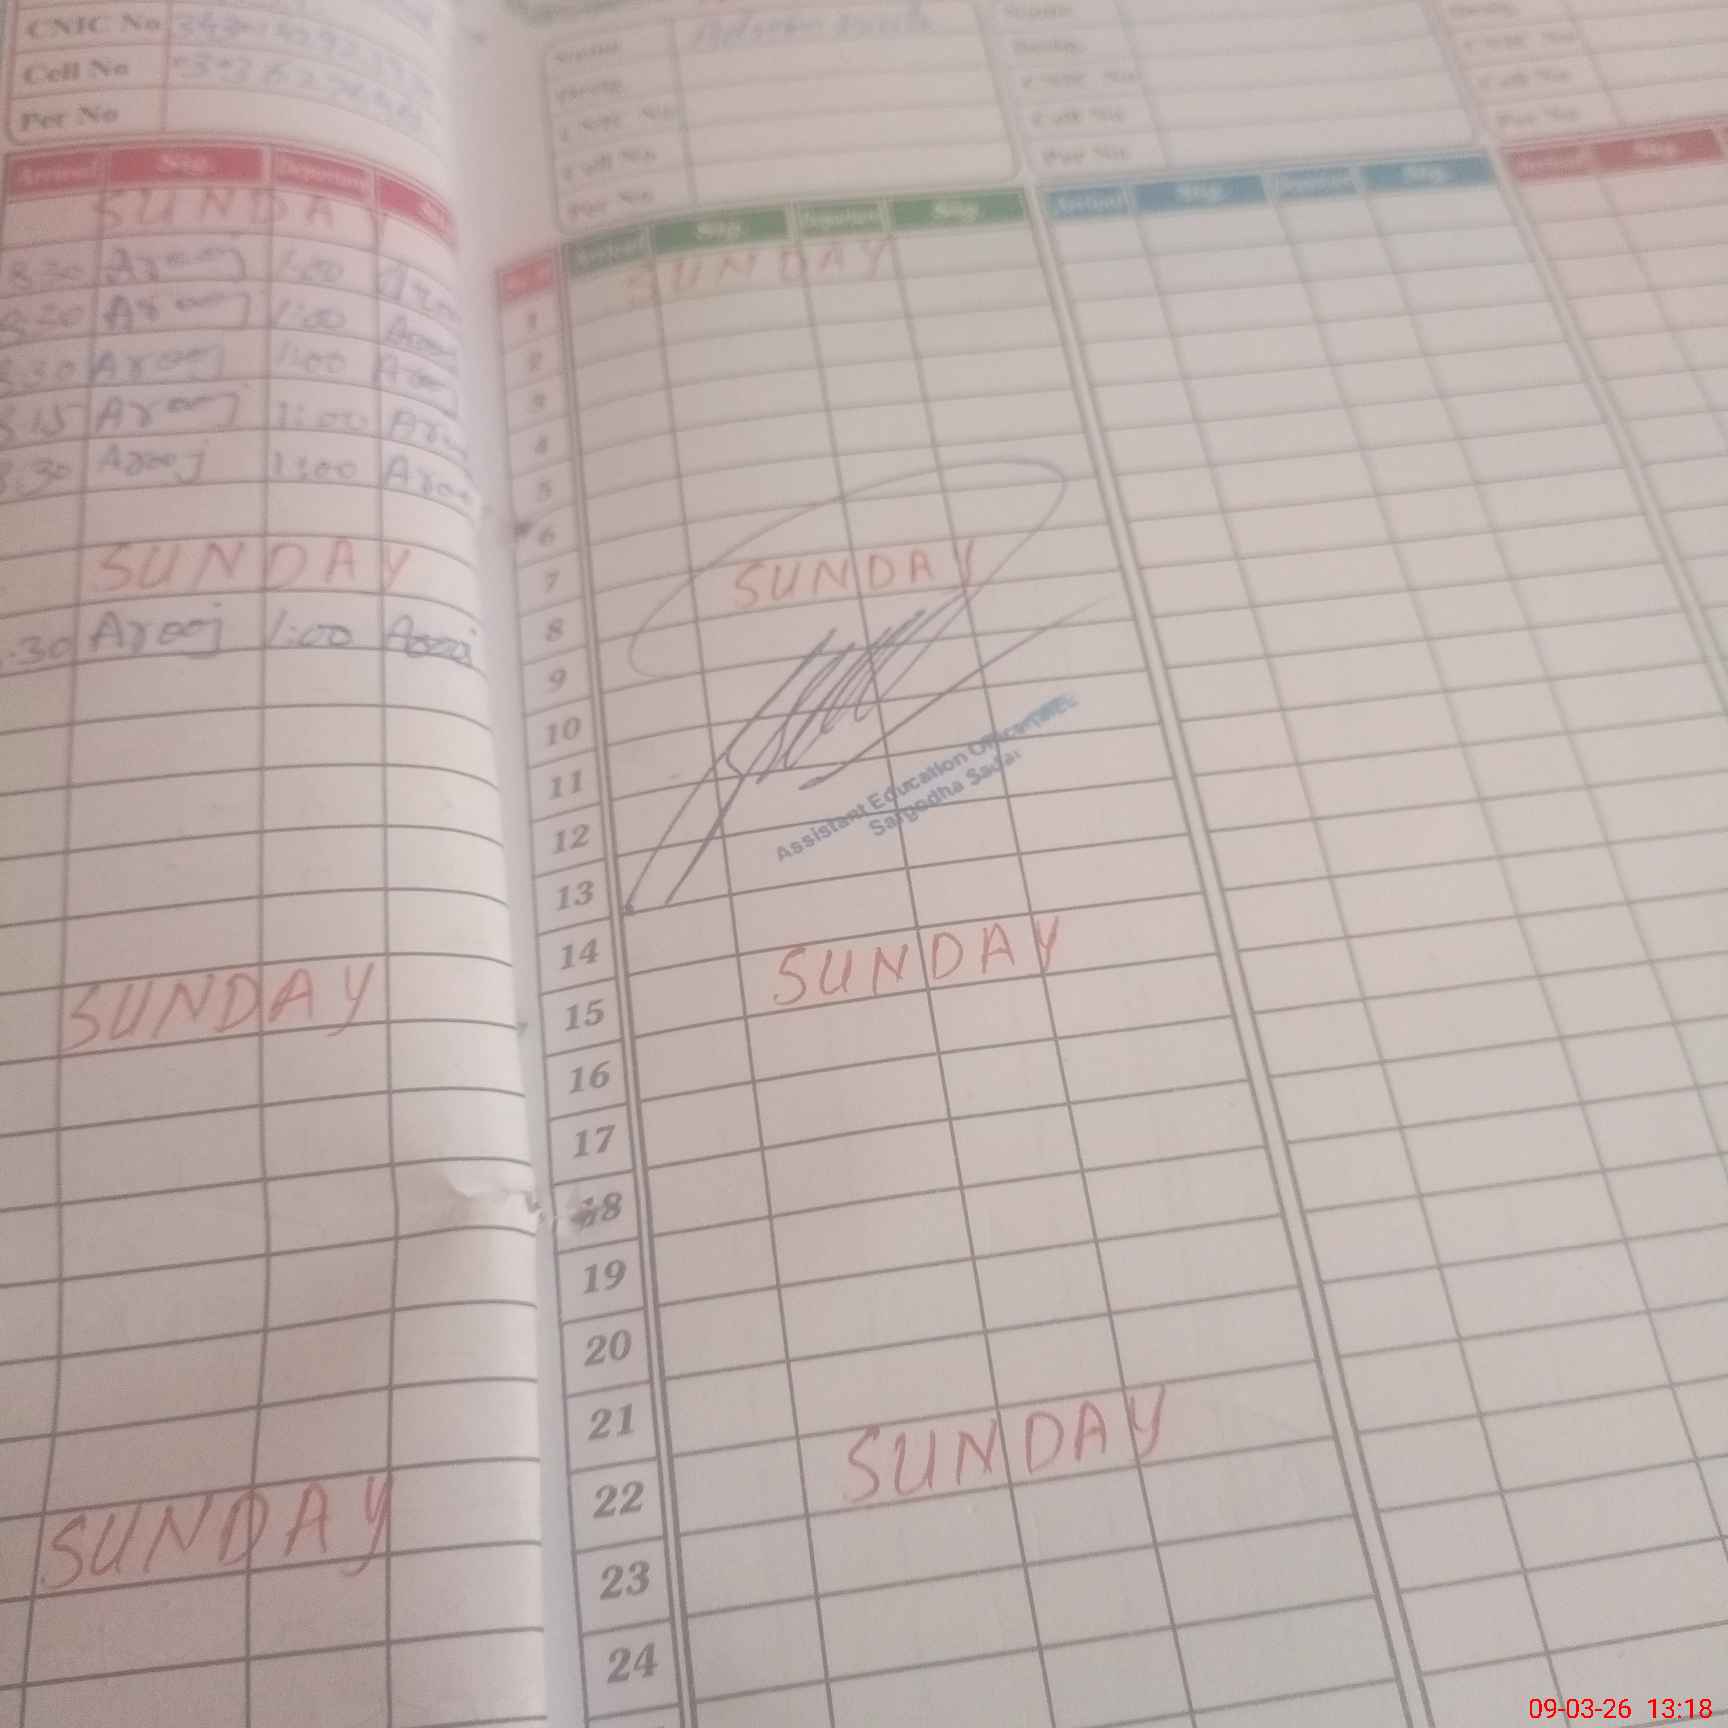 CNIC No
Cell No
Per No
Arrival Sig. Departure
SUNDAY
8:30 Arooj 1:00
8:30 Arooj 1:00 Arooj
8:30 Arooj 1:00 Arooj
8:15 Arooj 1:00
8:30 Arooj 1:00 Arooj
SUNDAY
:30 Arooj 1:00 Arooj
SUNDAY
SUNDAY
Name
Desig.
CNIC No
Cell No
Per No
Arrival Sig. Departure Sig.
SUNDAY
1
2
3
4
5
6
7
SUNDAY
8
9
10
11
12
Assistant Education Officer
Sargodha Sadar
13
14
SUNDAY
15
16
17
18
19
20
21
SUNDAY
22
23
24
Name
Desig.
CNIC No
Cell No
Per No
Arrival Sig. Departure Sig.
Desig.
CNIC No
Cell No
Per No
Arrival Sig.
09-03-26 13:18